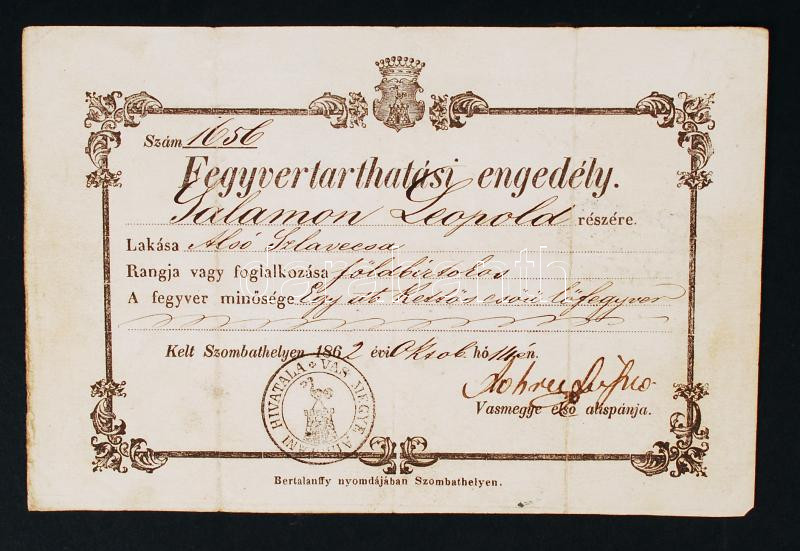 Szám 1656
Fegyvertarthatási engedély.
Salamon Leopold részére.
Lakása Alsó Szlavecsa
Rangja vagy foglalkozása földbirtokos
A fegyver minősége Egy üt. Kettős csövű lőfegyver
Kelt Szombathelyen 1862 évi Oktob. hó 14én.
VAS MEGYE ALISPÁNI HIVATALA
Vasmegye első alispánja.
Bertalanffy nyomdájában Szombathelyen.
darabanth